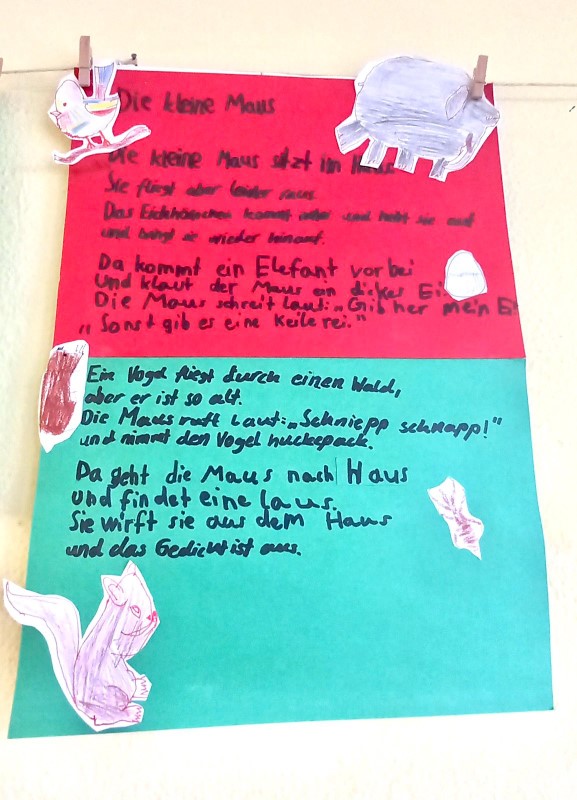 Die kleine Maus
Die kleine Maus sitzt im Haus.
Sie fliegt aber leider raus.
Das Eichhörnchen kommt und hebt sie auf
und bringt sie wieder hinauf.
Da kommt ein Elefant vorbei
Und klaut der Maus ein dickes Ei.
Die Maus schreit laut: „Gib her mein Ei
„Sonst gib es eine Keilerei."
Ein Vogel fliegt durch einen Wald,
aber er ist so alt.
Die Maus ruft laut: „Schniepp schnapp!"
und nimmt den Vogel huckepack.
Da geht die Maus nach Haus
und findet eine Laus.
Sie wirft sie aus dem Haus
und das Gedicht ist aus.